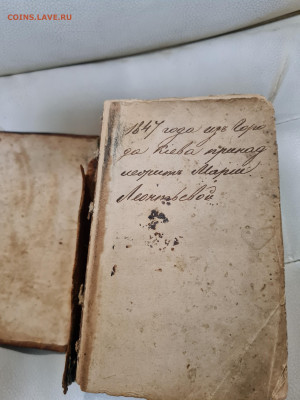 COINS.LAVE.RU
1847 года изъ Горо
да Кіева принад
лежитъ Маріи
Леонтьевой